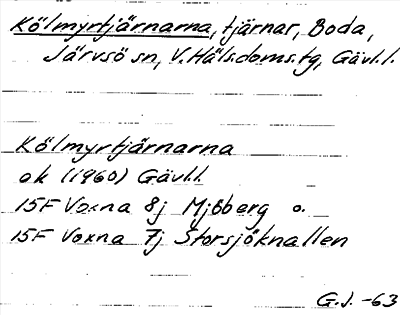 Kölmyrtjärnarna, tjärnar, Boda,
Järvsö sn, V. Hälsdoms.tg, Gävl.l.
Kölmyrtjärnarna
ek (1960) Gävl.l.
15F Voxna 8j Mjöberg o.
15F Voxna 7j Storsjöknallen
G.J. -63